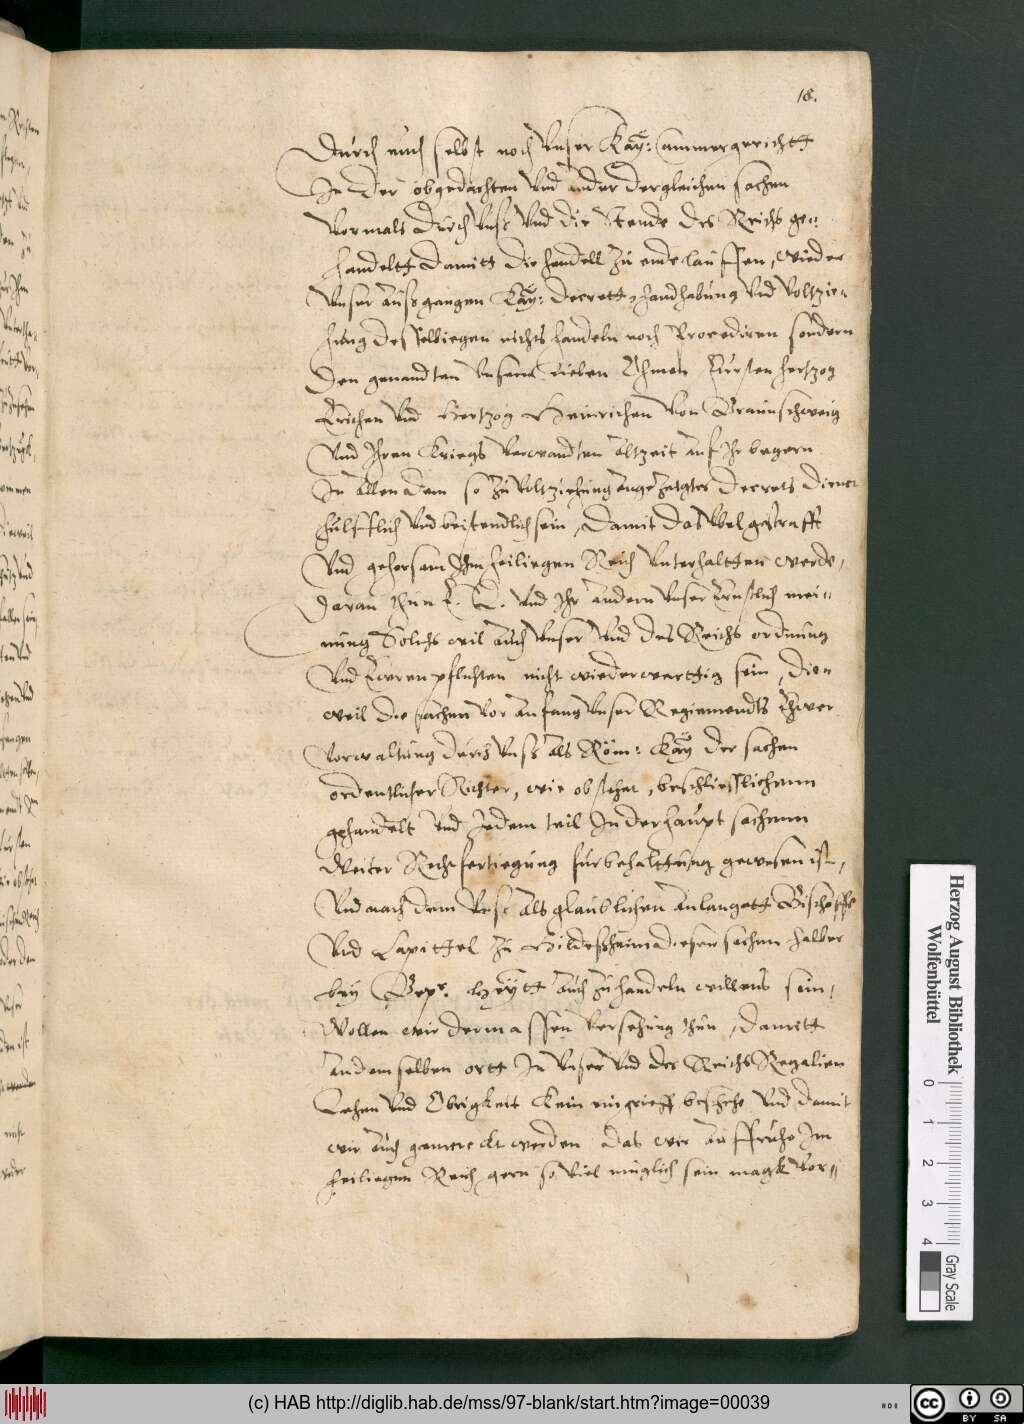 18.
Durch euch selbst noch Vnser Kay: Cammergerichtt
In der obgedachten Vnd ander dergleichen sachen
Vormals durch Vnß Vnd die Stende des Reichs ge=
handeltt damitt die handell zu ende lauffen, wieder
Vnser außgangen Kay: Decrett, handhabung Vnd Voltzie=
hung desselbiegen nichts handeln noch Procediren sondern
den genandten Vnsern lieben Ohmen Fürsten hertzog
Erichen Vnd Hertzog Heinrichen Von Braunschweig
Vnd Ihren Kriegs Verwandten altzeit auf Ihr begern
In allen dem so zu Voltziehung angezeigtes Decrets dienet
hülfflich Vnd beistendlich sein, damit das Vbel gestrafft
Vnd gehorsam Im heiliegen Reich Vnterhaltten werde,
daran thun E. L. Vnd Ihr andern Vnser Ernstlich mei=
nung Solichs wil auch Vnser Vnd des Reichs ordnung
Vnd Ewren pflichten nicht wiederwerttig sein, die=
weil die sachen Vor anfang Vnser Regiemendts Ewer
Verwaltung durch Vnß als Röm: Kay der sachen
ordentlicher Richter, wie obstehet, beschließlichenn
gehandelt Vnd Jedem teil In der haupt sachenn
Weiter Rechtfertiegung fürbehalttung gewesen ist,
Vnd nach dem Vnß als glaublichen anlangtt Bischoffe
Vnd Capittel zu Hildeßheim diesen sachen halber
bey Bäp. Heytt auch zu handeln willens sein,
Wollen wir dermassen Versehung thun, damitt
an demselben ortt In Vnser Vnd des Reichs Regalien
Lehen Vnd Obrigkeit kein eingrieff beschehe Vnd damit
wir auch gemerckt werden das wir auffruhr Im
heiliegen Reich gern so Viel müglich sein magk Vor=
Herzog August Bibliothek
Wolfenbüttel
0 1 2 3 4
Gray Scale
(c) HAB http://diglib.hab.de/mss/97-blank/start.htm?image=00039
cc BY SA